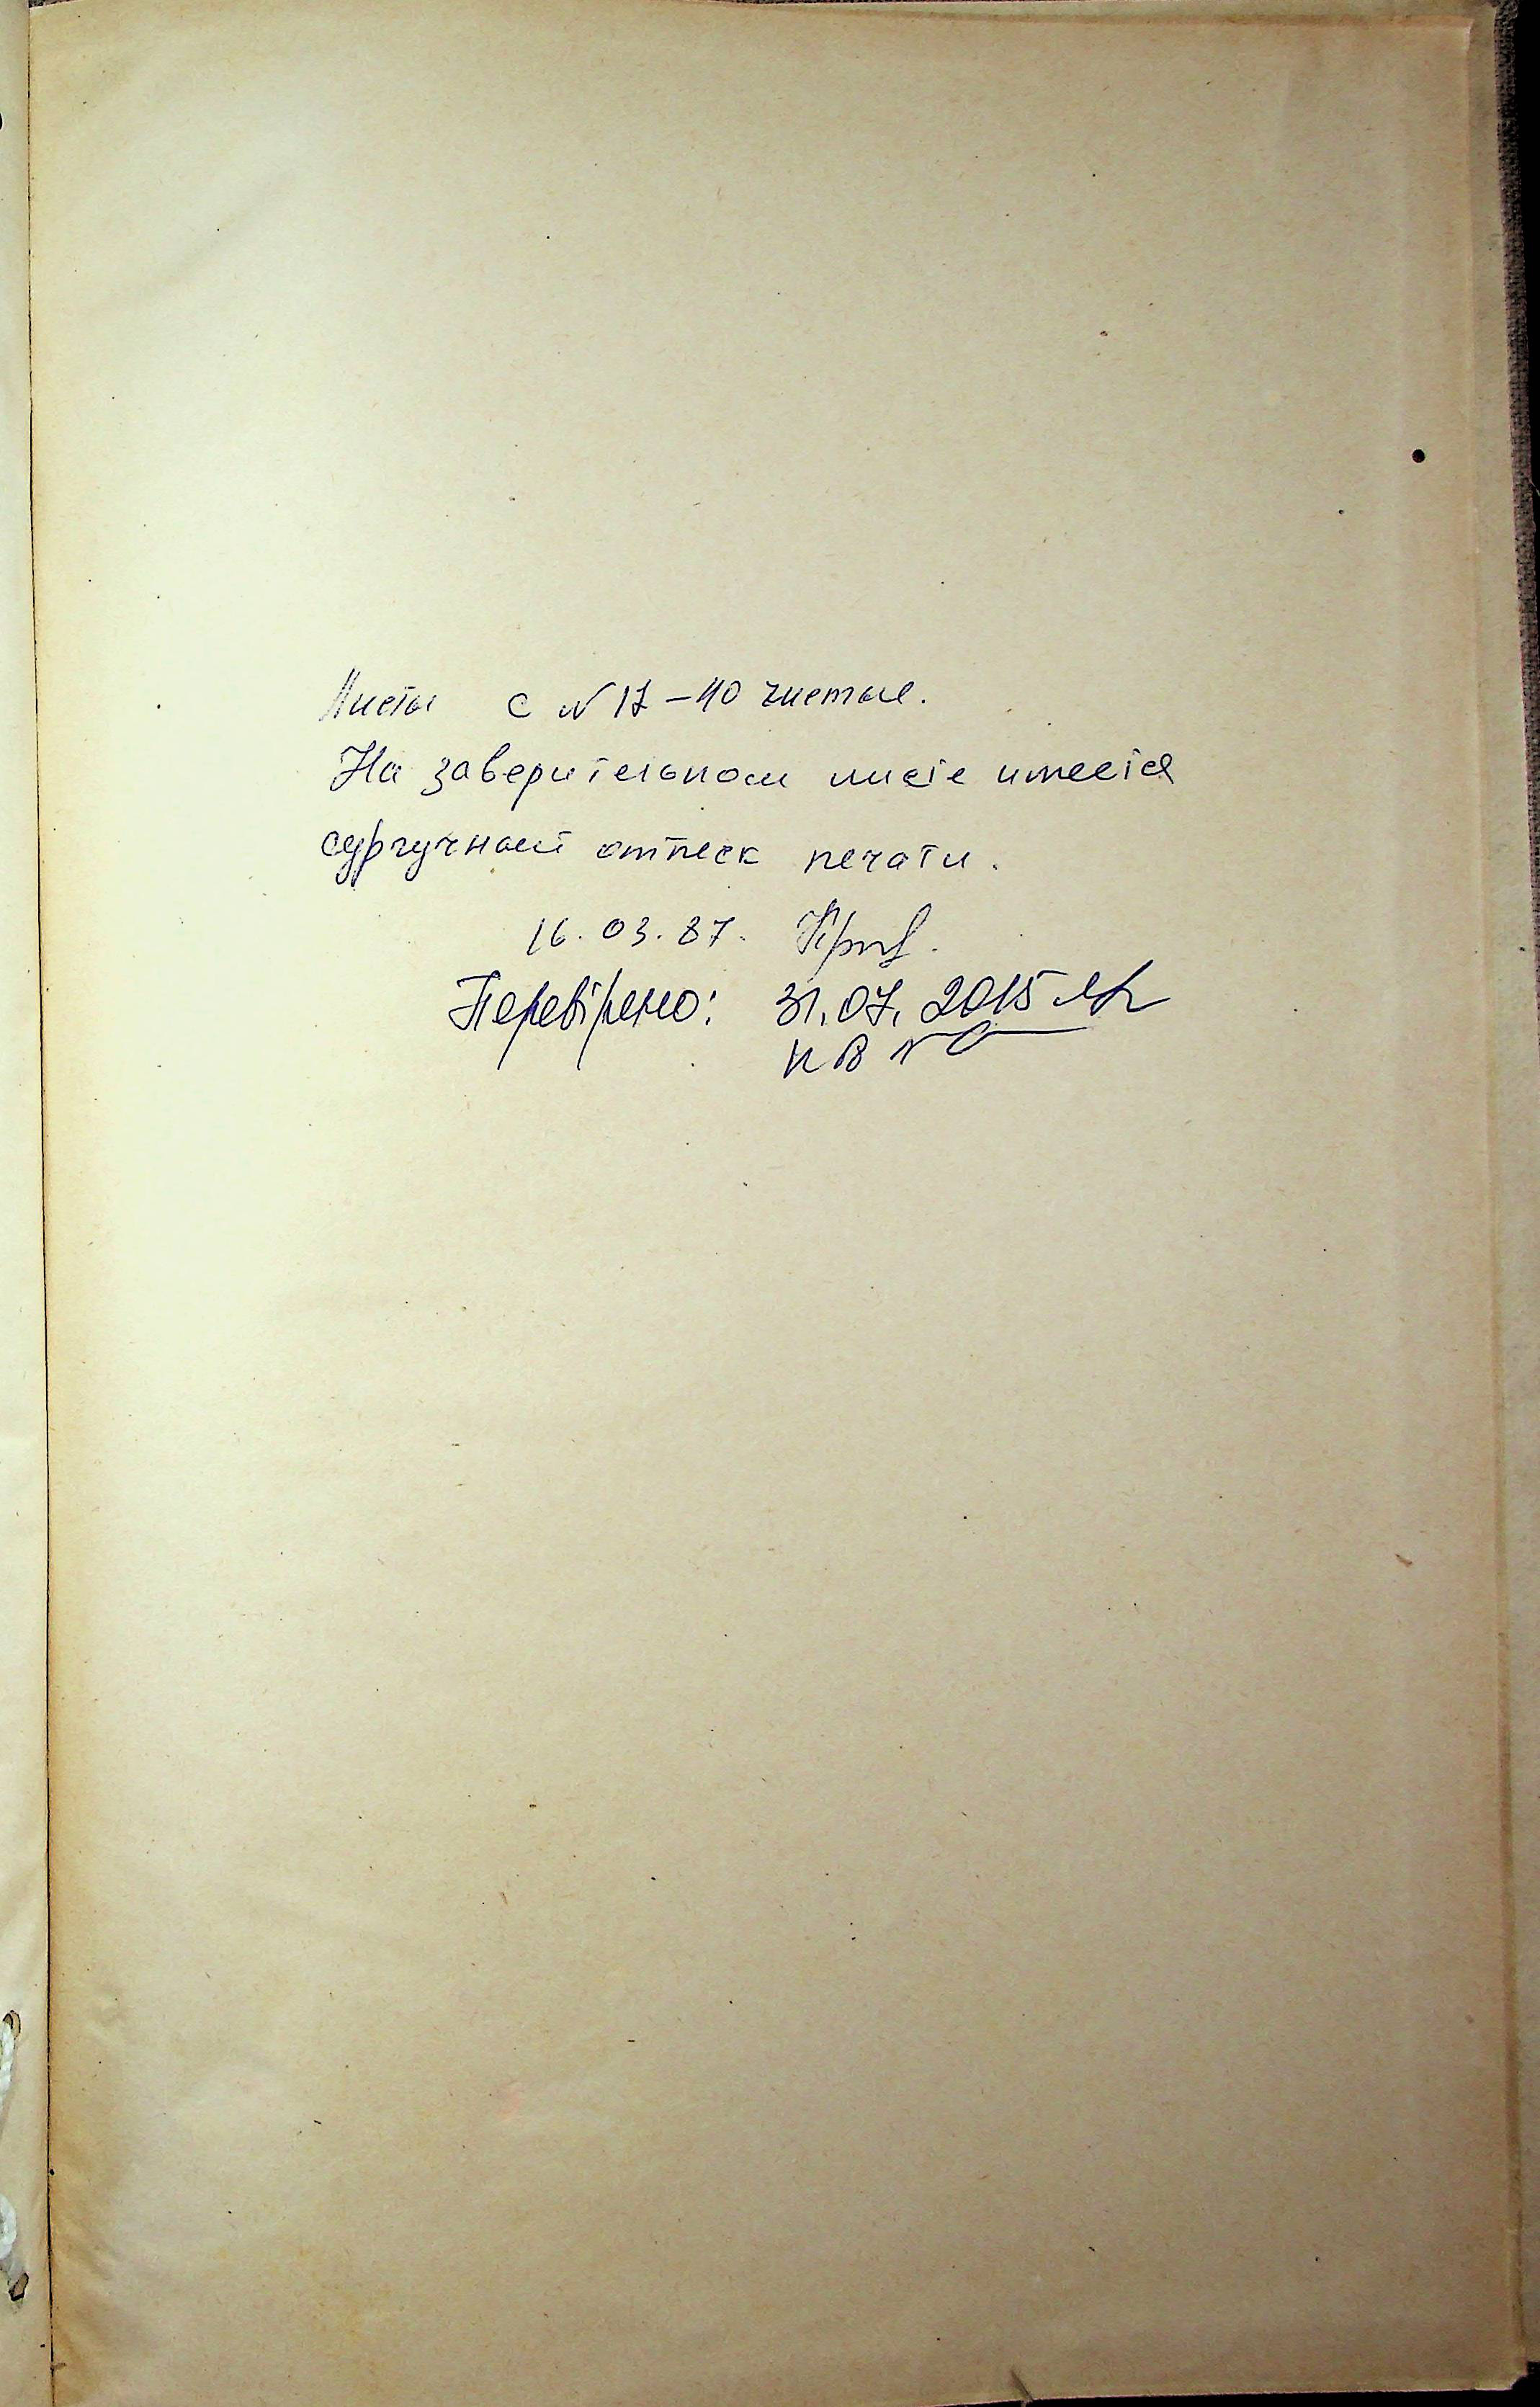 Листы с N 17-40 чистые.
На заверительном листе имеется
сургучный оттеск печати.
16.03.87.
Перевірено: 31.07.2015